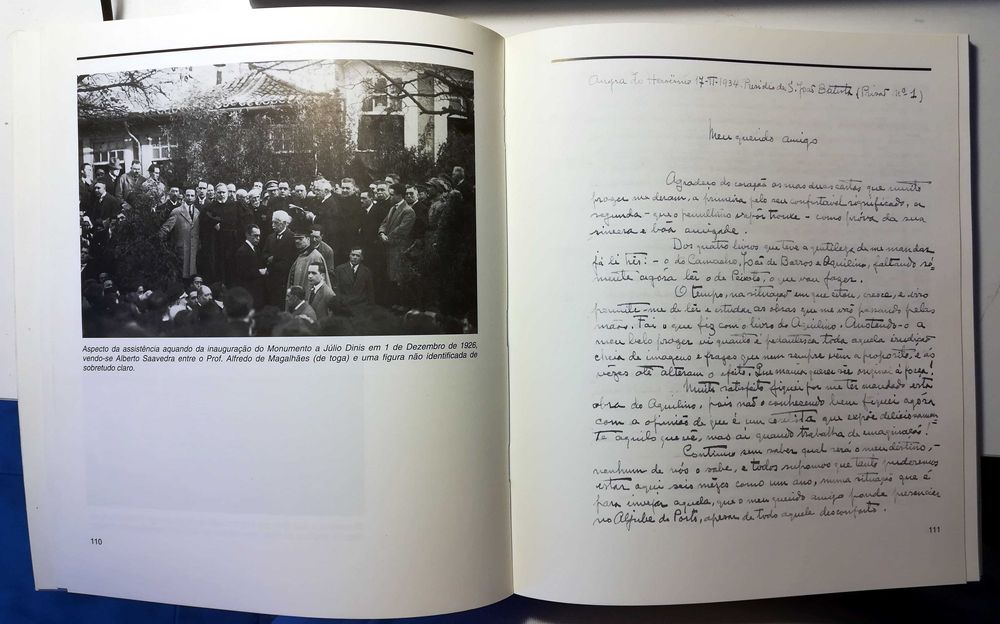 Aspecto da assistência aquando da inauguração do Monumento a Júlio Dinis em 1 de Dezembro de 1926,
vendo-se Alberto Saavedra entre o Prof. Alfredo de Magalhães (de toga) e uma figura não identificada de
sobretudo claro.
110
Angra do Heroísmo 17-II-1934. Presídio de S. João Batista (Prisão nº 1)
Meu querido amigo
Agradeço do coração as suas duas cartas que muito
prazer me deram, a primeira pelo seu confortavel significado, a
segunda - que o penultimo vapôr trouxe - como próva da sua
sincera e bôa amizade.
Dos quatro livros que teve a gentileza de me mandar
já li três: - o do Camacho, João de Barros e Aquilino, faltando só-
mente agóra lêr o de Peixoto, o que vou fazer.
O tempo, na situação em que estou, cresce, e isso
permite-me de lêr e estudar as obras que me vão passando pelas
mãos. Foi o que fiz com o livro do Aquilino. Anotando-o a
meu belo prazer vi quanto é pedantesca toda aquela erudição
cheia de imagens e frazes que nem sempre vêm a propósito, e ás
vêzes até alteram o efeito. Que mania querer sêr original á força!
Muito satisfeito fiquei por me ter mandado esta
obra do Aquilino, pois não o conhecendo bem fiquei agora
com a opinião de que é um que expõe deliciosamen-
te aquilo que vê, mas ai quando trabalha de imaginação!
Continuo sem saber qual será o meu destino,
nenhum de nós o sabe, e todos supomos que tanto poderemos
estar aqui seis mêzes como um ano, numa situação que é
para invejar aquela, que o meu querido amigo poude presenciar
no Aljube do Porto, apesar de todo aquele desconforto.
111